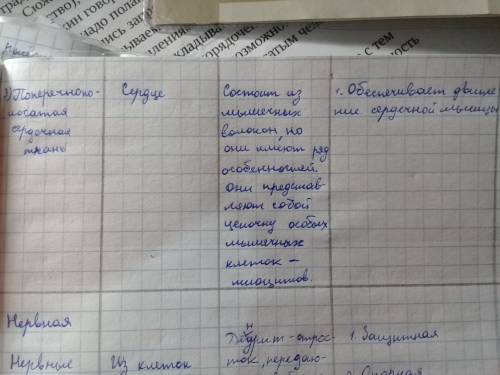 Сюже
тво),
надо пола
порядоче
возможно
с тем
ность
2) Поперечнопо-
лосатая
сердечная
ткань
Сердце
Состоит из
мышечных
волокон, но
они имеют ряд
особенностей.
Они представ-
ляют собой
цепочку особых
мышечных
клеток -
миоцитов.
1. Обеспечивает движе
ние сердечной мышцы
Нервная
Нервные
Из клеток
Дендрит-отрос-
ток, передаю-
1. Защитная
2. Опорная